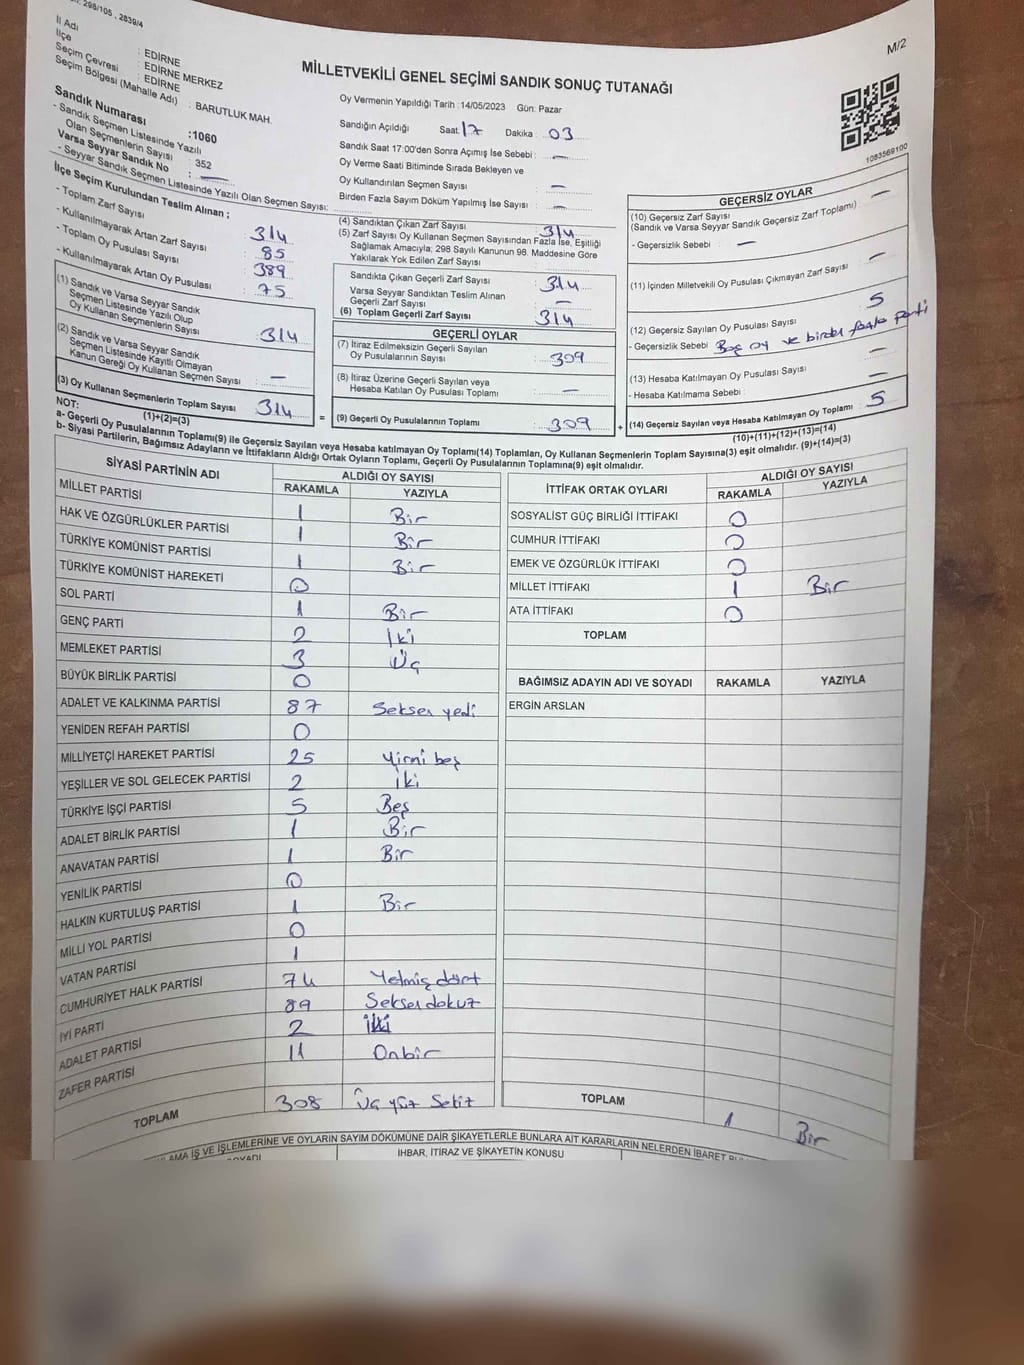 298/105 , 2839/4
M/2
İl Adı : EDİRNE
İlçe : EDİRNE MERKEZ
Seçim Çevresi : EDİRNE
Seçim Bölgesi (Mahalle Adı) : BARUTLUK MAH.
Sandık Numarası :1060
- Sandık Seçmen Listesinde Yazılı
Olan Seçmenlerin Sayısı : 352
Varsa Seyyar Sandık No : —
- Seyyar Sandık Seçmen Listesinde Yazılı Olan Seçmen Sayısı:
İlçe Seçim Kurulundan Teslim Alınan ;
- Toplam Zarf Sayısı : 314
- Kullanılmayarak Artan Zarf Sayısı : 85
- Toplam Oy Pusulası Sayısı : 389
- Kullanılmayarak Artan Oy Pusulası : 75
(1) Sandık ve Varsa Seyyar Sandık
Seçmen Listesinde Yazılı Olup
Oy Kullanan Seçmenlerin Sayısı : 314
(2) Sandık ve Varsa Seyyar Sandık
Seçmen Listesinde Kayıtlı Olmayan
Kanun Gereği Oy Kullanan Seçmen Sayısı : —
(3) Oy Kullanan Seçmenlerin Toplam Sayısı : 314
(1)+(2)=(3)
MİLLETVEKİLİ GENEL SEÇİMİ SANDIK SONUÇ TUTANAĞI
Oy Vermenin Yapıldığı Tarih :14/05/2023 Gün: Pazar
Sandığın Açıldığı Saat: 17 Dakika : 03
Sandık Saat 17:00'den Sonra Açımış İse Sebebi : —
Oy Verme Saati Bitiminde Sırada Bekleyen ve
Oy Kullandırılan Seçmen Sayısı : —
Birden Fazla Sayım Döküm Yapılmış İse Sayısı : —
(4) Sandıktan Çıkan Zarf Sayısı : 314
(5) Zarf Sayısı Oy Kullanan Seçmen Sayısından Fazla İse, Eşitliği
Sağlamak Amacıyla; 298 Sayılı Kanunun 98. Maddesine Göre
Yakılarak Yok Edilen Zarf Sayısı :
Sandıkta Çıkan Geçerli Zarf Sayısı : 314
Varsa Seyyar Sandıktan Teslim Alınan
Geçerli Zarf Sayısı : —
(6) Toplam Geçerli Zarf Sayısı : 314
GEÇERLİ OYLAR
(7) İtiraz Edilmeksizin Geçerli Sayılan
Oy Pusulalarının Sayısı : 309
(8) İtiraz Üzerine Geçerli Sayılan veya
Hesaba Katılan Oy Pusulası Toplamı : —
= (9) Geçerli Oy Pusulalarının Toplamı : 309 +
1083569100
GEÇERSİZ OYLAR
(10) Geçersiz Zarf Sayısı : —
(Sandık ve Varsa Seyyar Sandık Geçersiz Zarf Toplamı)
- Geçersizlik Sebebi : —
(11) İçinden Milletvekili Oy Pusulası Çıkmayan Zarf Sayısı : —
(12) Geçersiz Sayılan Oy Pusulası Sayısı : 5
- Geçersizlik Sebebi : Boş oy ve birden fazla parti
(13) Hesaba Katılmayan Oy Pusulası Sayısı : —
- Hesaba Katılmama Sebebi : —
(14) Geçersiz Sayılan veya Hesaba Katılmayan Oy Toplamı : 5
(10)+(11)+(12)+(13)=(14)
NOT:
a- Geçerli Oy Pusulalarının Toplamı(9) ile Geçersiz Sayılan veya Hesaba katılmayan Oy Toplamı(14) Toplamları, Oy Kullanan Seçmenlerin Toplam Sayısına(3) eşit olmalıdır. (9)+(14)=(3)
b- Siyasi Partilerin, Bağımsız Adayların ve İttifakların Aldığı Ortak Oyların Toplamı, Geçerli Oy Pusulalarının Toplamına(9) eşit olmalıdır.
SİYASİ PARTİNİN ADI ALDIĞI OY SAYISI
RAKAMLA YAZIYLA
MİLLET PARTİSİ 1 Bir
HAK VE ÖZGÜRLÜKLER PARTİSİ 1 Bir
TÜRKİYE KOMÜNİST PARTİSİ 1 Bir
TÜRKİYE KOMÜNİST HAREKETİ 0
SOL PARTİ 1 Bir
GENÇ PARTİ 2 İki
MEMLEKET PARTİSİ 3 Üç
BÜYÜK BİRLİK PARTİSİ 0
ADALET VE KALKINMA PARTİSİ 87 Seksen yedi
YENİDEN REFAH PARTİSİ 0
MİLLİYETÇİ HAREKET PARTİSİ 25 Yirmi beş
YEŞİLLER VE SOL GELECEK PARTİSİ 2 İki
TÜRKİYE İŞÇİ PARTİSİ 5 Beş
ADALET BİRLİK PARTİSİ 1 Bir
ANAVATAN PARTİSİ 1 Bir
YENİLİK PARTİSİ 0
HALKIN KURTULUŞ PARTİSİ 1 Bir
MİLLİ YOL PARTİSİ 0
VATAN PARTİSİ 1
CUMHURİYET HALK PARTİSİ 74 Yetmiş dört
İYİ PARTİ 89 Seksen dokuz
ADALET PARTİSİ 2 İki
ZAFER PARTİSİ 11 Onbir
TOPLAM 308 Üç yüz Sekiz
İTTİFAK ORTAK OYLARI ALDIĞI OY SAYISI
RAKAMLA YAZIYLA
SOSYALİST GÜÇ BİRLİĞİ İTTİFAKI 0
CUMHUR İTTİFAKI 0
EMEK VE ÖZGÜRLÜK İTTİFAKI 0
MİLLET İTTİFAKI 1 Bir
ATA İTTİFAKI 0
TOPLAM
BAĞIMSIZ ADAYIN ADI VE SOYADI RAKAMLA YAZIYLA
ERGİN ARSLAN
TOPLAM 1 Bir
AMA İŞ VE İŞLEMLERİNE VE OYLARIN SAYIM DÖKÜMÜNE DAİR ŞİKAYETLERLE BUNLARA AİT KARARLARIN NELERDEN İBARET
OYADI İHBAR, İTİRAZ VE ŞİKAYETİN KONUSU